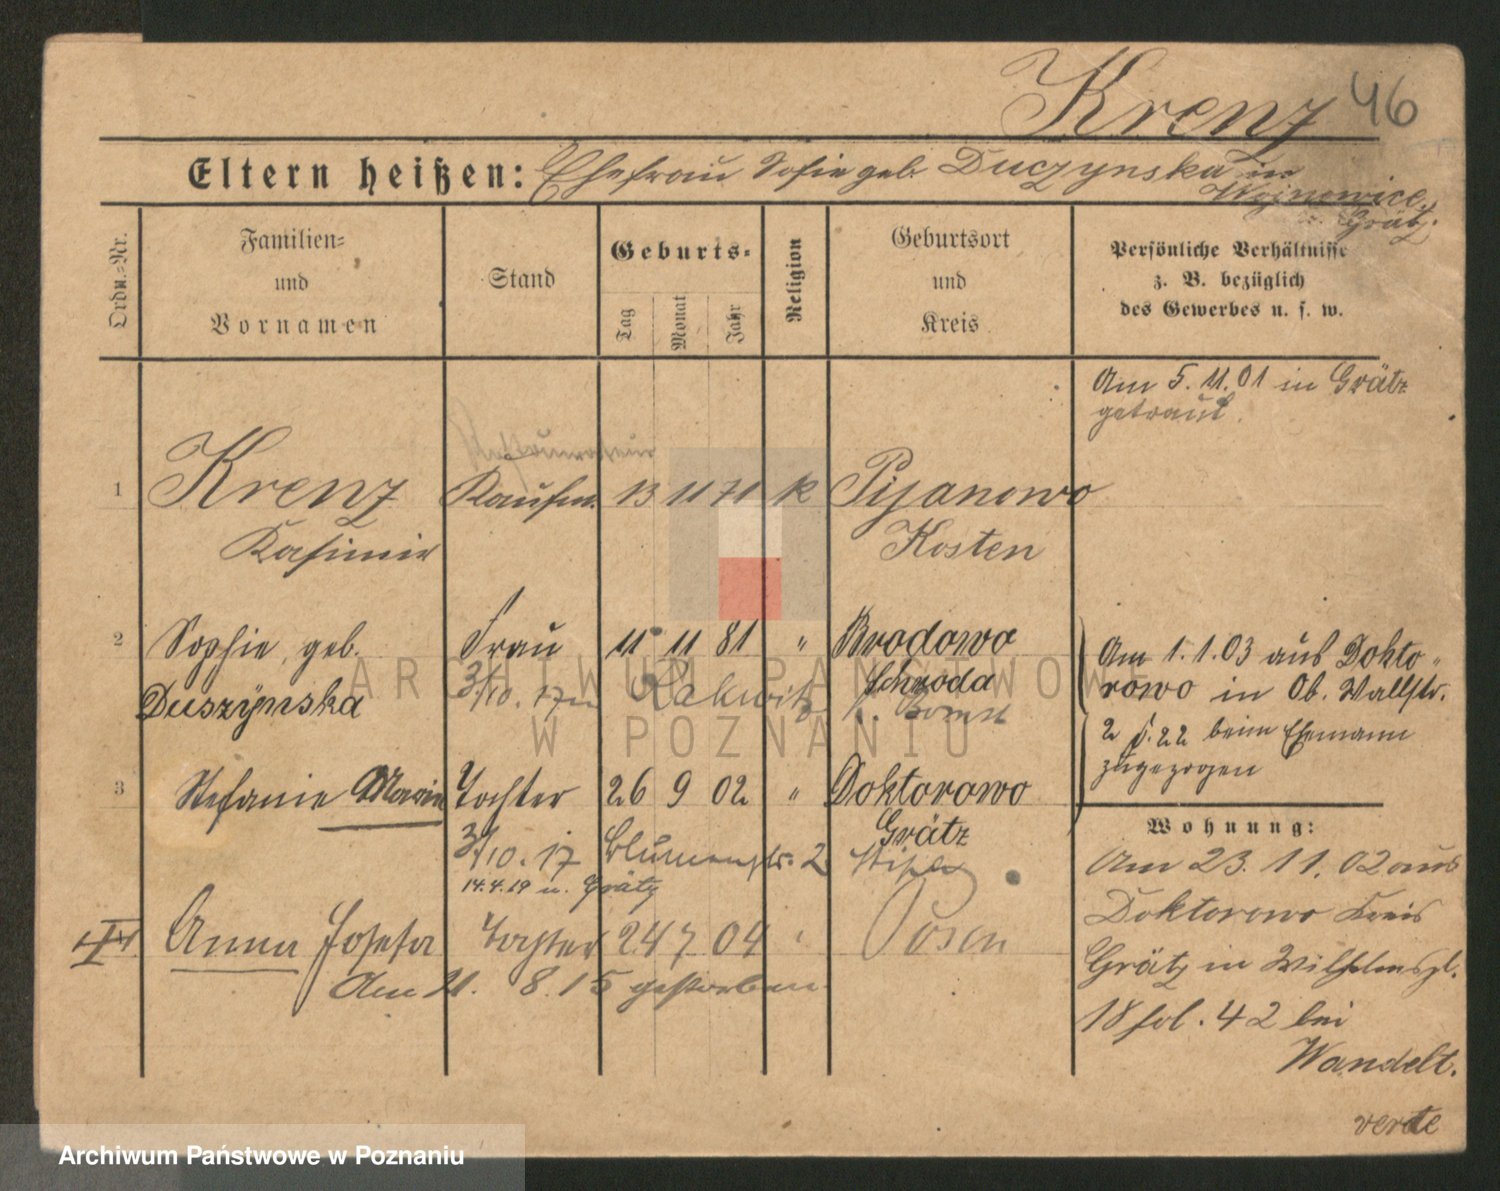 Krenz 46
Eltern heißen: Ehefrau Sofie geb. Duczynska in
Wojnowice,
Grätz.
Ordn.-Nr.
Familien-
und
Vornamen
Stand
Geburts-
Tag
Monat
Jahr
Religion
Geburtsort
und
Kreis
Persönliche Verhältnisse
z. B. bezüglich
des Gewerbes u. s. w.
Am 5. 11. 01 in Grätz
getraut.
1 Krenz Kaufm. 13 11 71 k Pijanowo
Kasimir Kosten
2 Sophie, geb. Frau 11 11 81 " Brodowo
Duszÿnska Schroda
3/10. 17 Rakwitz Bomst
Am 1. 1. 03 aus Dokto-
rowo in Ob. Wallstr.
2 22 beim Ehemann
zugezogen
3 Stefanie Maria Tochter 26 9 02 " Doktorowo
Grätz
3/10. 17 Blumenstr. 2
14.4.19 n. Grätz
Wohnung:
Am 23. 11. 02 aus
Doktorowo Kreis
Grätz in Wilhelmspl.
18 fol. 42 bei
Wandelt.
verte
Anna Josefa Tochter 24 7 04 Posen
Am 11. 8. 15 gestorben
ARCHIWUM PAŃSTWOWE
W POZNANIU
Archiwum Państwowe w Poznaniu